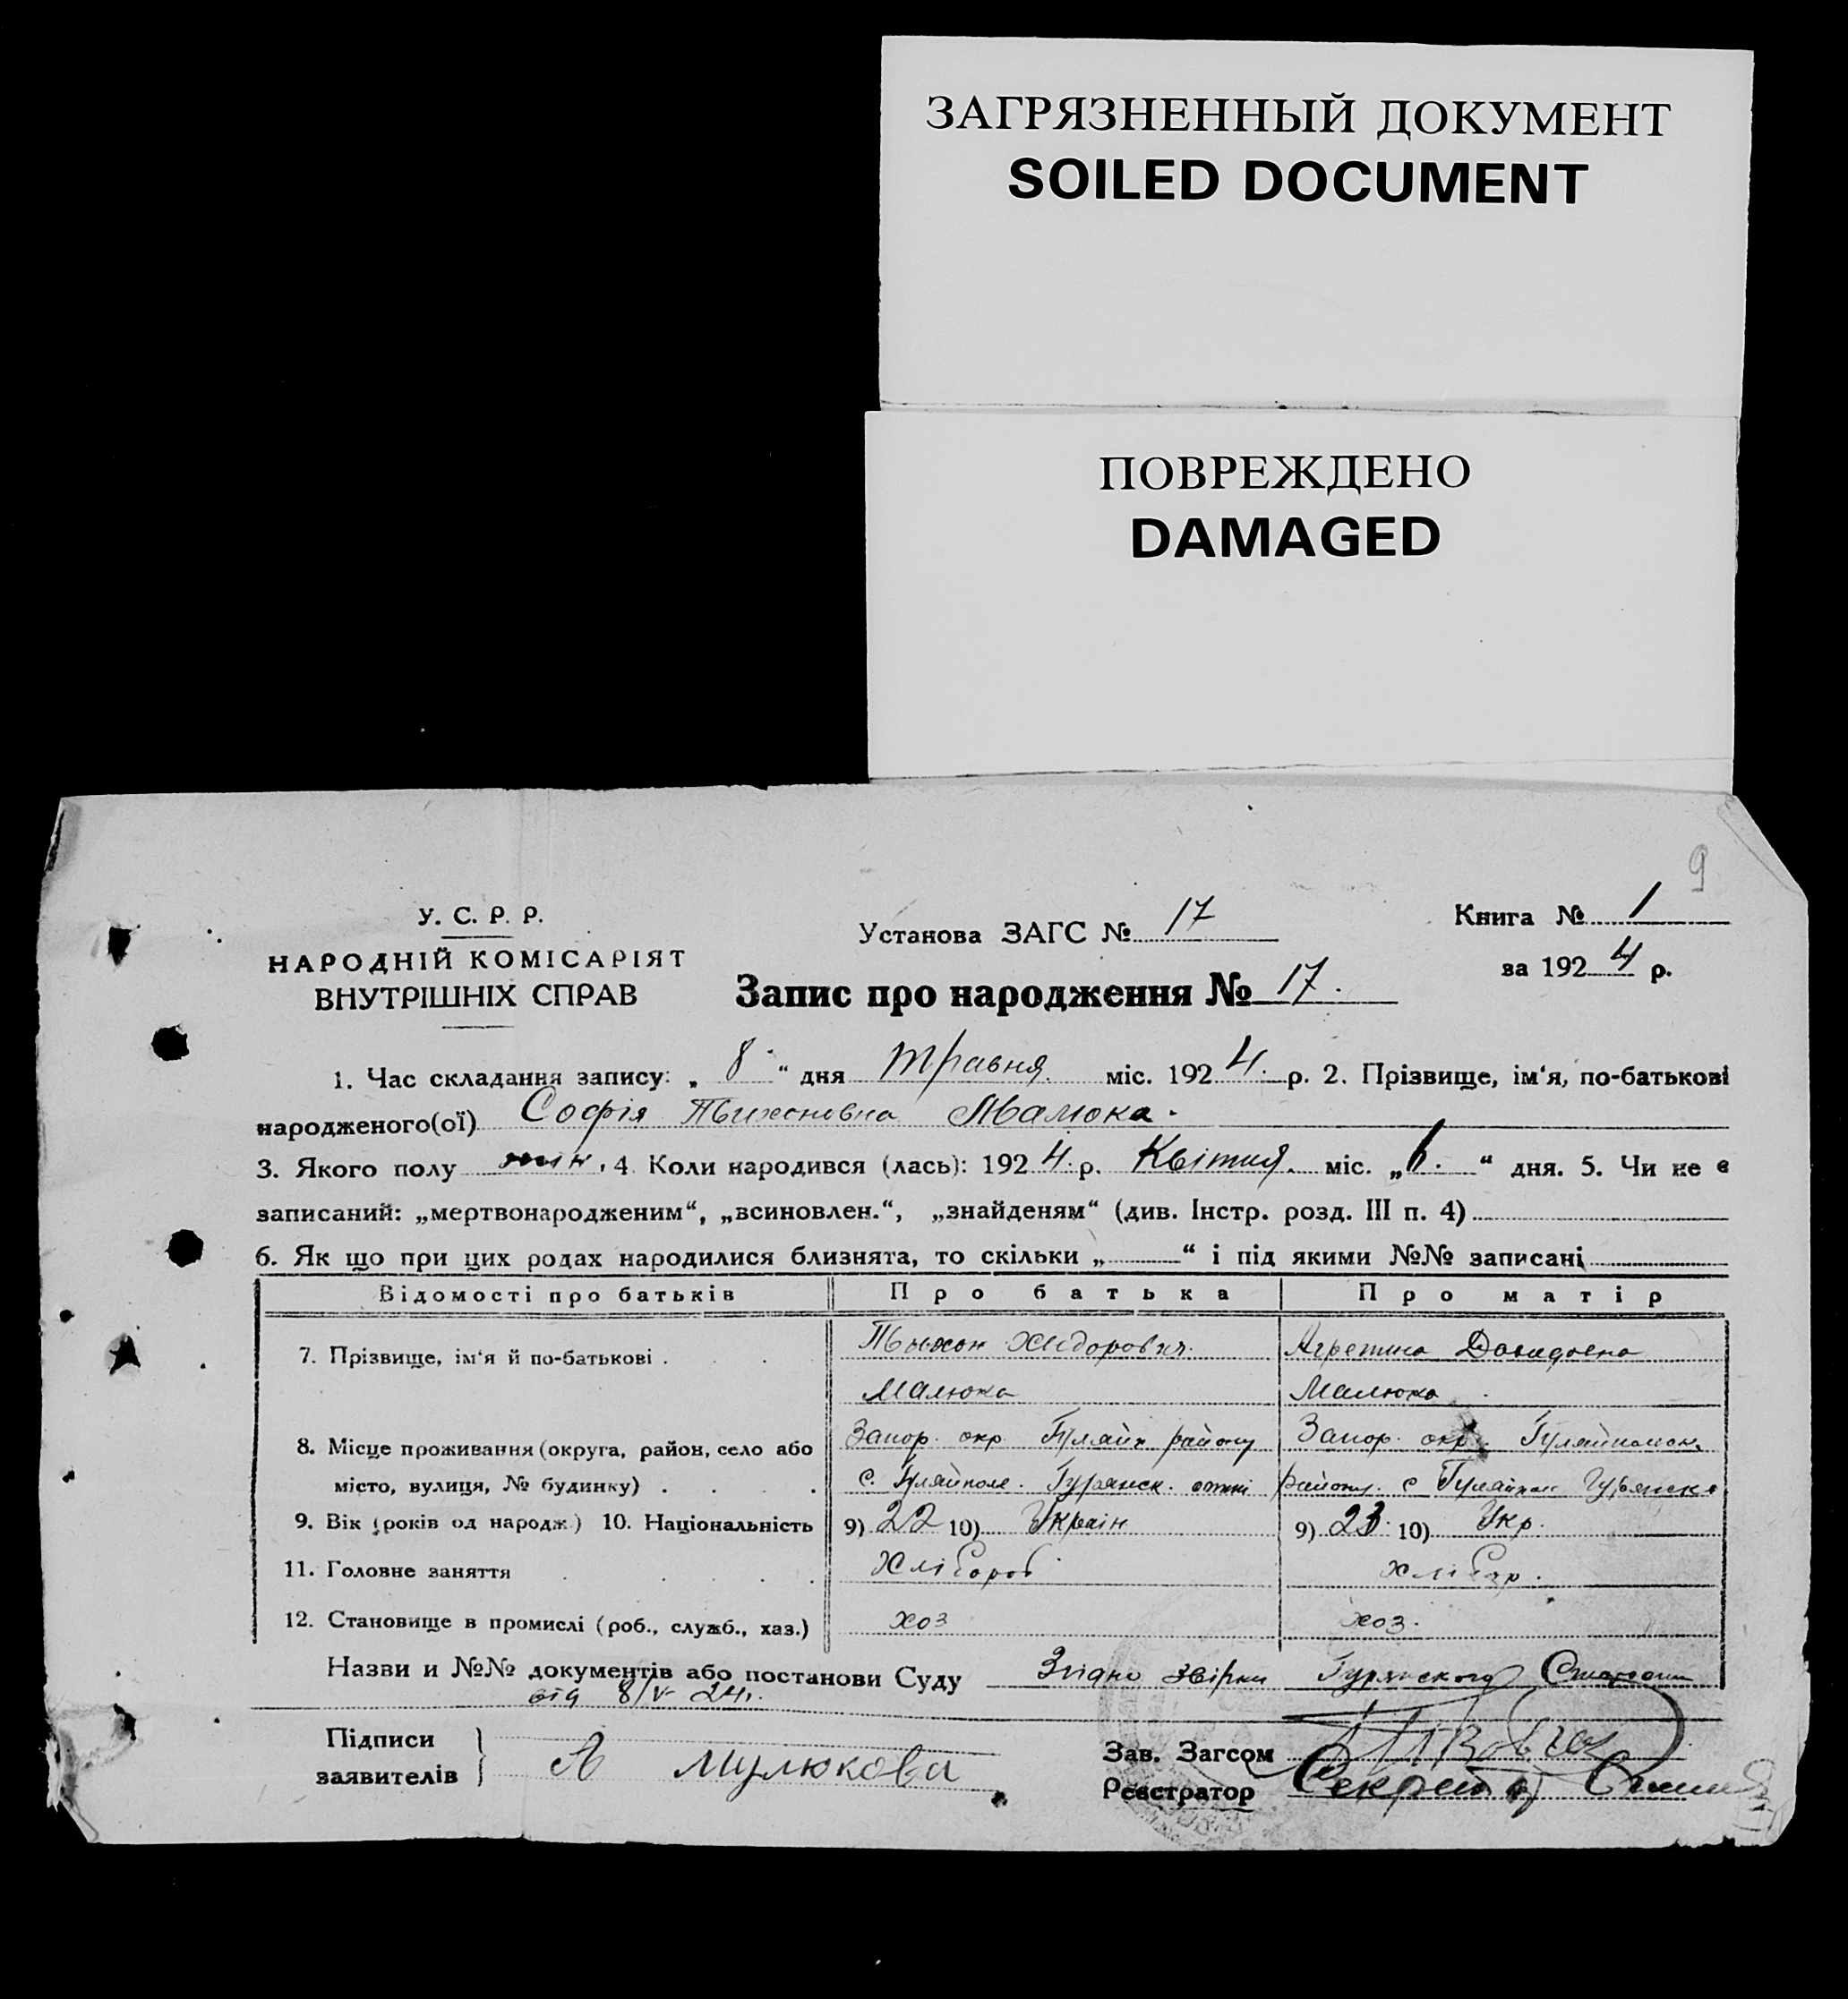 ЗАГРЯЗНЕННЫЙ ДОКУМЕНТ
SOILED DOCUMENT
ПОВРЕЖДЕНО
DAMAGED
9
У. С. Р. Р.
НАРОДНІЙ КОМІСАРІЯТ
ВНУТРІШНІХ СПРАВ
Установа ЗАГС № 17
Запис про народження № 17.
Книга № 1
за 1924 р.
1. Час складання запису: „ 8 “ дня травня міс. 1924. р. 2. Прізвище, ім‘я, по-батькові
народженого(ої) Софія Тихоновна Малюка.
3. Якого полу жін. 4 Коли народився (лась): 1924. р. Квітня. міс. „ 6. “ дня. 5. Чи не є
записаний: „мертвонародженим“, „всиновлен.“, „знайденям“ (див. Інстр. розд. III п. 4)
6. Як що при цих родах народилися близнята, то скільки „ “ і під якими №№ записані
Відомості про батьків Про батька Про матір
7. Прізвище, ім‘я й по-батькові . Тихон Агрепина Давидовна
Малюка Малюка
8. Місце проживання (округа, район, село або Запор. окр. Гуляйп району Запор. окр. Гуляйпольн.
місто, вулиця, № будинку) . с. Гуляйполе. Гурянск. сотні району с Гуляйполе Гурянско
9. Вік (років од народж.) 10. Національність 9) 22 10) Україн 9) 23. 10) Укр.
11. Головне заняття Хлібороб хлібор.
12. Становище в промислі (роб., служб., хаз.) хоз хоз.
Назви и №№ документів або постанови Суду Згідно Гурянского
від 8/V 24р.
Підписи
заявителів А Малюкова
Зав. Загсом
Реєстратор Секретар